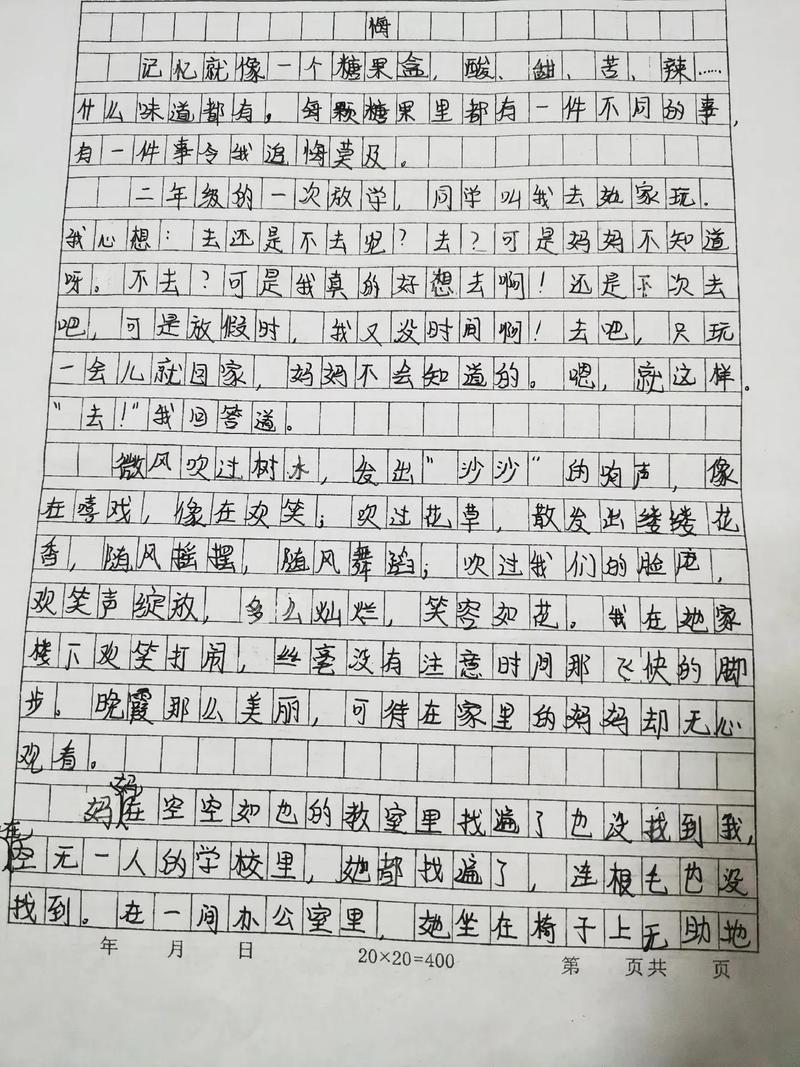 悔
记忆就像一个糖果盒，酸、甜、苦、辣……
什么味道都有，每颗糖果里都有一件不同的事，
有一件事令我追悔莫及。
二年级的一次放学，同学叫我去她家玩．
我心想：去还是不去呢？去？可是妈妈不知道
呀。不去？可是我真的好想去啊！还是下次去
吧，可是放假时，我又没时间啊！去吧，只玩
一会儿就回家，妈妈不会知道的。嗯，就这样。
“去！”我回答道。
微风吹过树木，发出“沙沙”的响声，像
在嘻戏，像在欢笑；吹过花草，散发出缕缕花
香，随风摇摆，随风舞蹈；吹过我们的脸庞，
欢笑声绽放，多么灿烂，笑容如花。我在她家
楼下欢笑打闹，丝毫没有注意时间那飞快的脚
步。晚霞那么美丽，可待在家里的妈妈却无心
观看。
妈妈在空空如也的教室里找遍了也没找到我，
空无一人的学校里，她都找遍了，连根毛也没
找到。在一间办公室里，她坐在椅子上无助地
年 月 日 20×20=400 第 页共 页